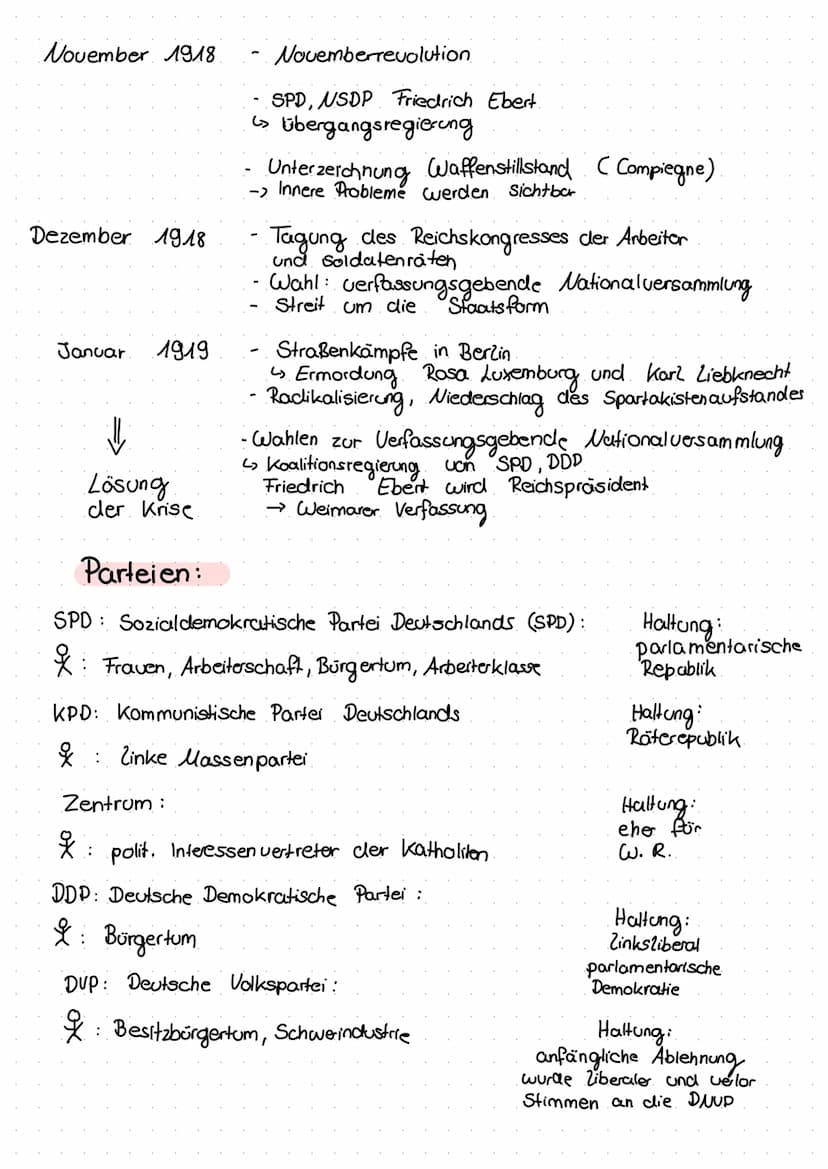 November 1918 - Novemberrevolution
- SPD, USDP Friedrich Ebert
↳ Übergangsregierung
- Unterzeichnung Waffenstillstand (Compiegne)
-> Innere Probleme werden Sichtbar
Dezember 1918 - Tagung des Reichskongresses der Arbeiter
und Soldatenräten
- Wahl: verfassungsgebende Nationalversammlung
- Streit um die Staatsform
Januar 1919 - Straßenkämpfe in Berlin
↳ Ermordung Rosa Luxemburg und Karl Liebknecht
- Radikalisierung, Niederschlag des Spartakistenaufstandes
⇓ - Wahlen zur Verfassungsgebende Nationalversammlung
↳ Koalitionsregierung von SPD, DDD
Lösung Friedrich Ebert wird Reichspräsident
der Krise → Weimarer Verfassung
Parteien:
SPD: Sozialdemokratische Partei Deutschlands (SPD): Haltung:
parlamentarische
: Frauen, Arbeiterschaft, Bürgertum, Arbeiterklasse Republik
KPD: Kommunistische Partei Deutschlands Haltung:
Räterepublik
: linke Massenpartei
Zentrum: Haltung:
eher für
: polit. Interessenvertreter der Katholiken W. R.
DDP: Deutsche Demokratische Partei:
Haltung:
: Bürgertum linksliberal
parlamentarische
DVP: Deutsche Volkspartei: Demokratie
: Besitzbürgertum, Schwerindustrie Haltung:
anfängliche Ablehnung
wurde liberaler und velor
Stimmen an die DNVP